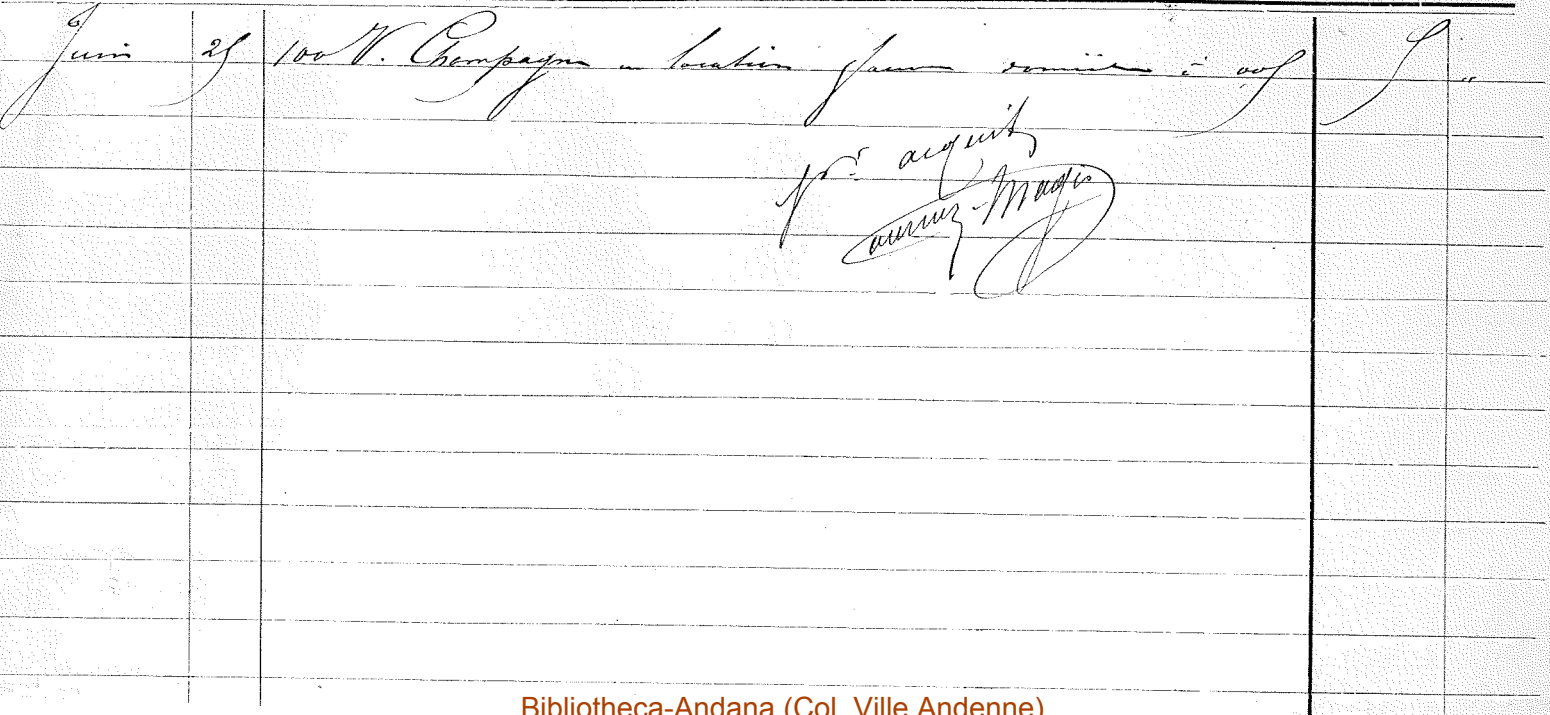 Juin 25 100 V. Champagne en location à 005 5 "
Pr. acquit
-Magis
Bibliotheca-Andana (Col. Ville Andenne)